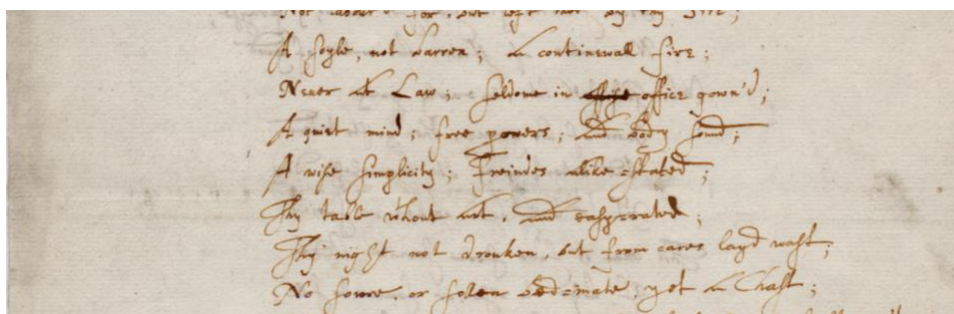 Not labour'd for, but left thee by thy Sire;
A soyle, not barren; a continewall fire;
Neuer at Law; seldome in office gown'd;
A quiet mind; free powers; and body sound;
A wise simplicity; Freindes alike-stated;
Thy table wthout art, and easy-rated;
Thy night not dronken, but from cares layd wast;
No sowre, or solem bed-mate, yet a Chast;